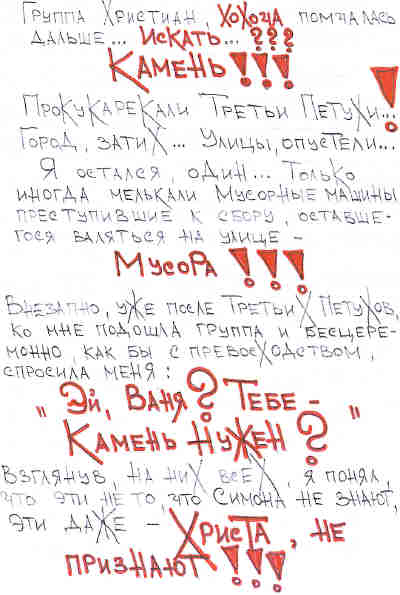 Группа Христиан, хохоча помчалась
дальше... искать...???
Камень!!!
Прокукарекали Третьи Петухи...!
Город, затих... Улицы, опустели...
Я остался, один... Только
иногда мелькали Мусорные машины
преступившие к сбору, оставше-
гося валяться на улице -
Мусора!!!
Внезапно, уже после Третьих Петухов,
ко мне подошла группа и бесцере-
монно, как бы с превосходством,
спросила меня:
"Эй, Ваня? Тебе -
Камень нужен?"
Взглянув, на них всех, я понял,
что эти, не то, что Симона не знают,
эти даже - Христа, не
признают!!!